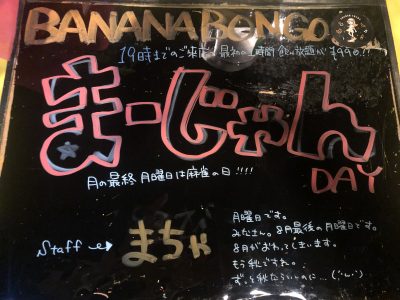 BANANA BONGO
19時までのご来店で最初の1時間飲み放題が¥990!!
まーじゃん
DAY
月の最終月曜日は麻雀の日!!!!
Staff
まちゃ
月曜日です。
みなさん。8月最後の月曜日です。
8月がおわってしまいます。
もう秋ですね。
ずっと秋ならいいのに…